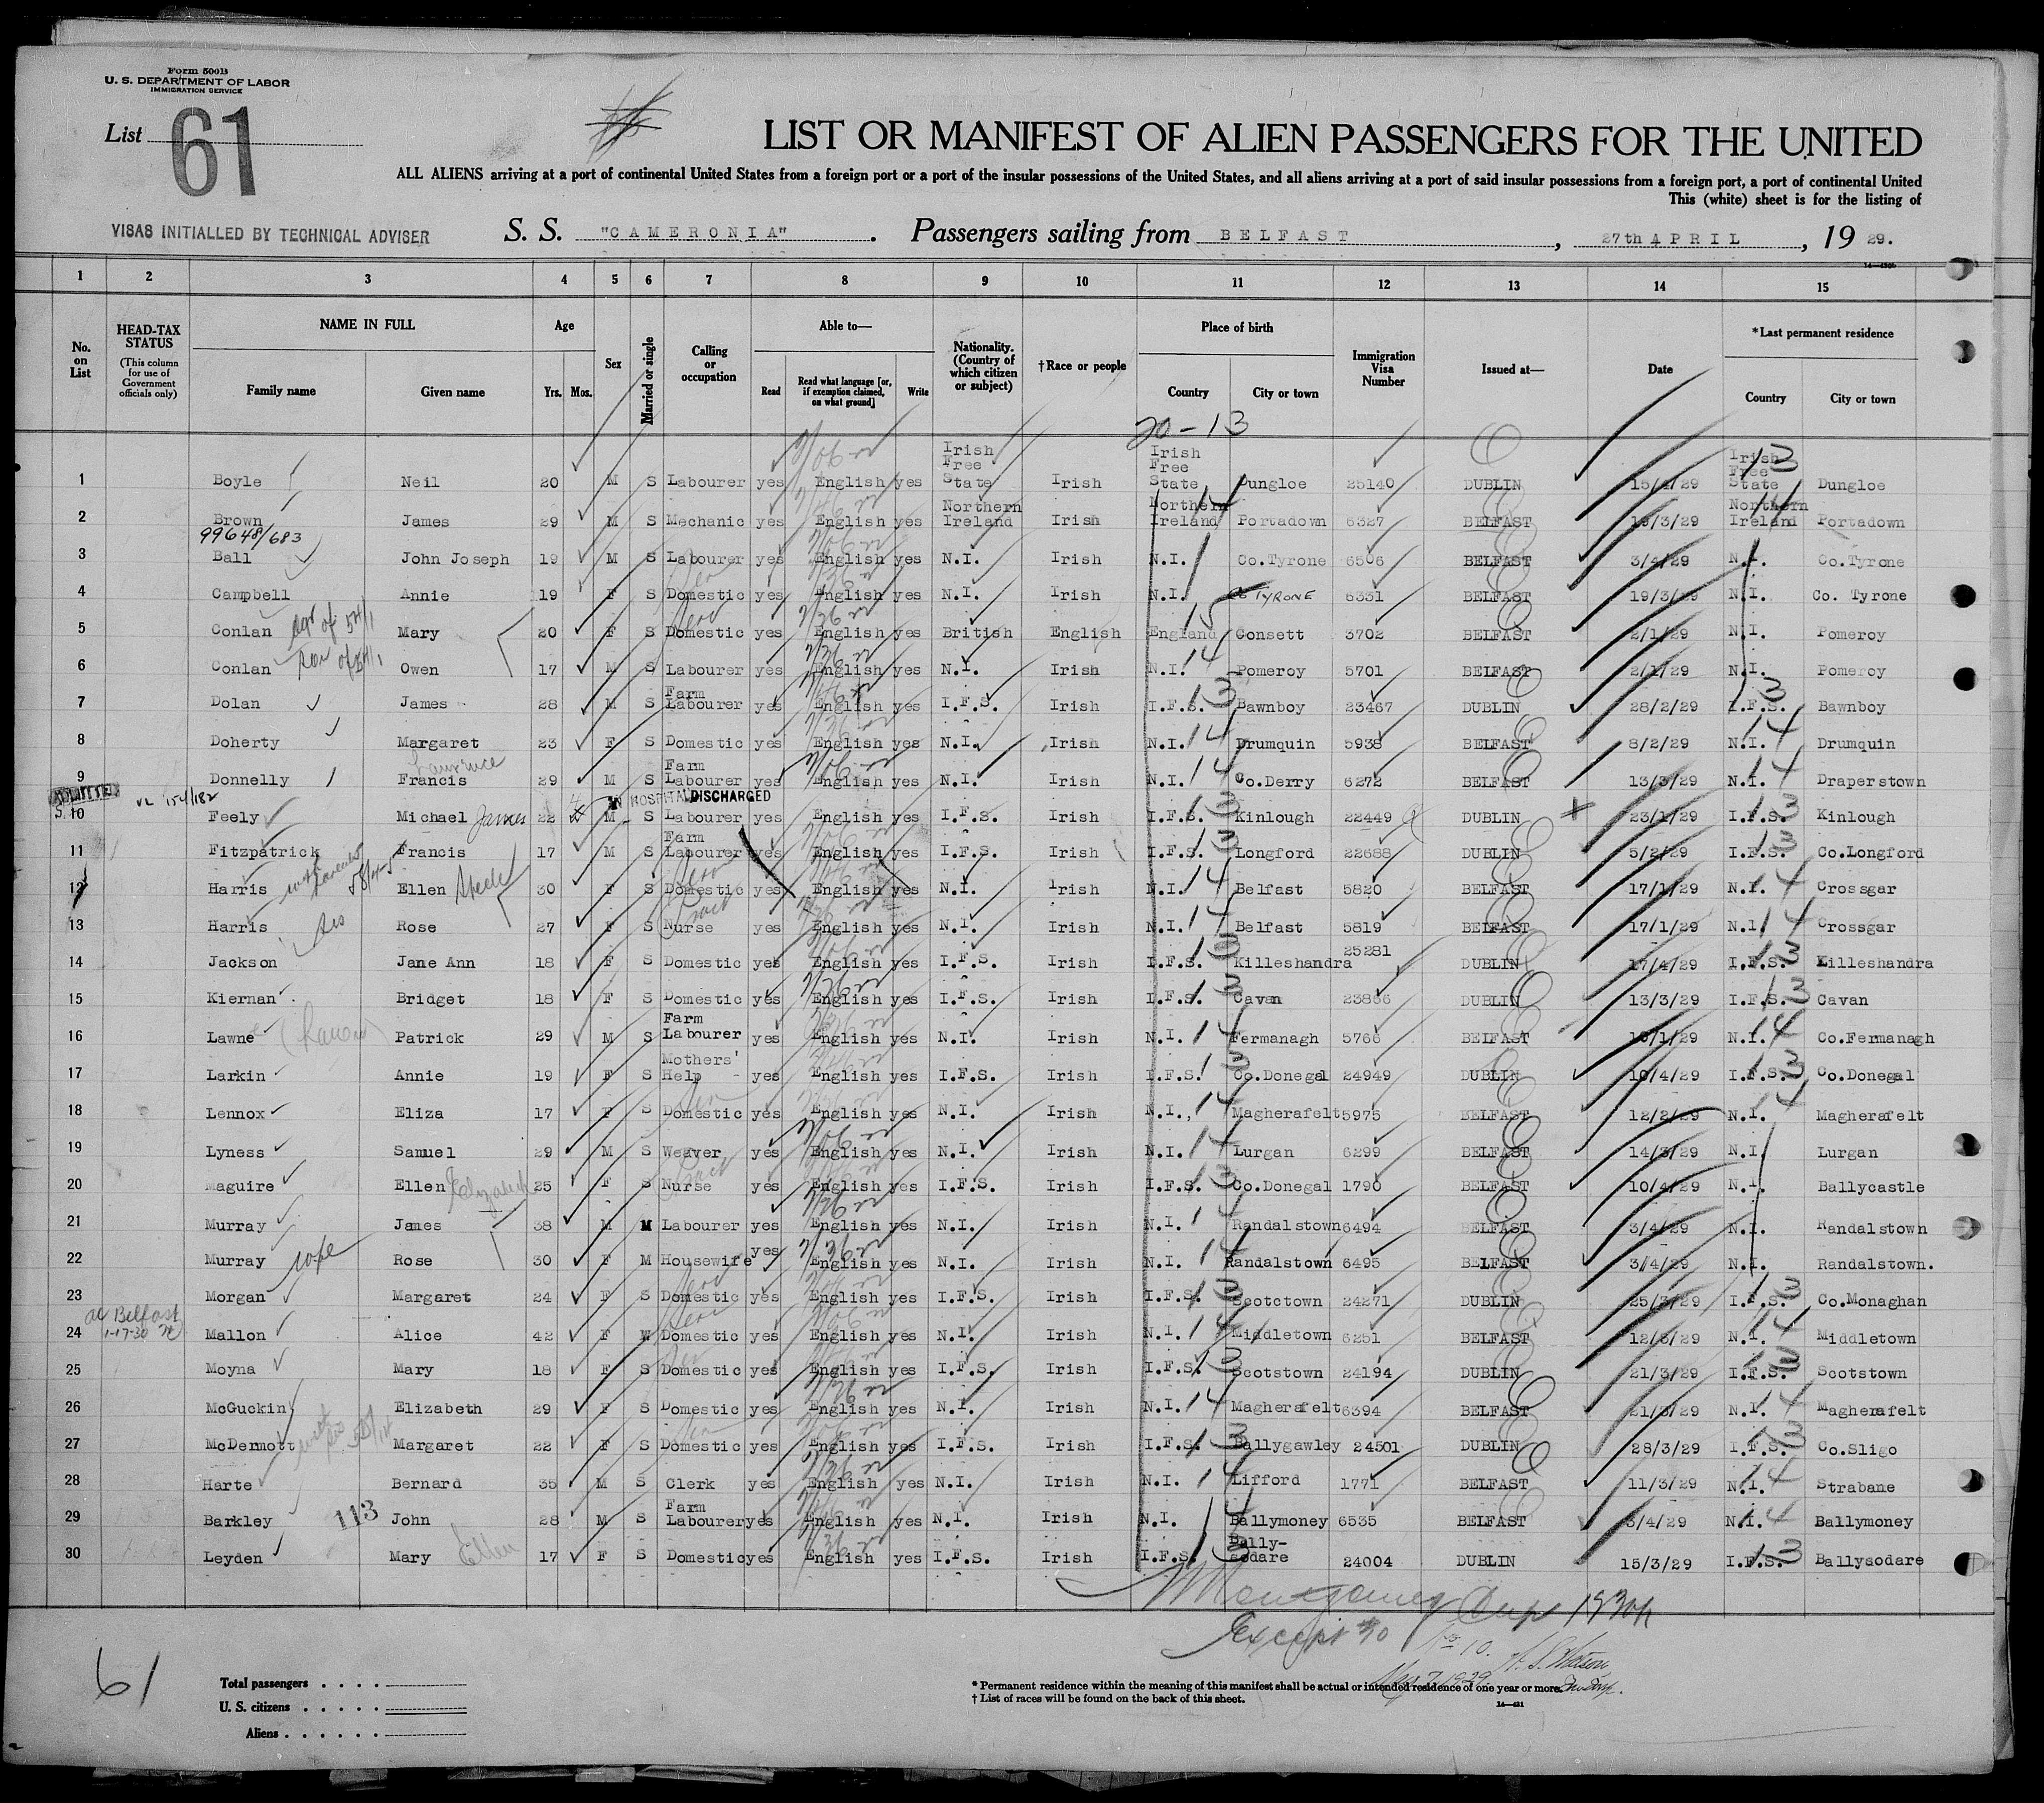 Form 500B
U. S. DEPARTMENT OF LABOR
IMMIGRATION SERVICE
List 61
LIST OR MANIFEST OF ALIEN PASSENGERS FOR THE UNITED
ALL ALIENS arriving at a port of continental United States from a foreign port or a port of the insular possessions of the United States, and all aliens arriving at a port of said insular possessions from a foreign port, a port of continental United
This (white) sheet is for the listing of
VISAS INITIALLED BY TECHNICAL ADVISER
S. S. "CAMERONIA". Passengers sailing from BELFAST, 27th APRIL, 1929.
1 2 3 4 5 6 7 8 9 10 11 12 13 14 15
No. on List
HEAD-TAX STATUS
(This column for use of Government officials only)
NAME IN FULL
Family name Given name
Age
Yrs. Mos.
Sex
Married or single
Calling or occupation
Able to—
Read
Read what language [or, if exemption claimed, on what ground]
Write
Nationality. (Country of which citizen or subject)
†Race or people
Place of birth
Country City or town
Immigration Visa Number
Issued at—
Date
*Last permanent residence
Country City or town
20-13
1 Boyle Neil 20 M S Labourer yes English yes Irish Free State Irish Irish Free State Dungloe 25140 DUBLIN 15/4/29 Irish Free State Dungloe
2 Brown James 29 M S Mechanic yes English yes Northern Ireland Irish Northern Ireland Portadown 6327 BELFAST /3/29 Northern Ireland Portadown
99648/683
3 Ball John Joseph 19 M S Labourer yes English yes N.I. Irish N.I. Co.Tyrone 6506 BELFAST 3/4/29 N.I. Co.Tyrone
4 Campbell Annie 19 F S Domestic yes English yes N.I. Irish N.I. Co TYRONE 6331 BELFAST 19/3/29 N.I. Co. Tyrone
5 Conlan Mary 20 F S Domestic yes English yes British English England Consett 3702 BELFAST 2/1/29 N.I. Pomeroy
6 Conlan Owen 17 M S Labourer yes English yes N.I. Irish N.I. 14 Pomeroy 5701 BELFAST 2/1/29 N.I. Pomeroy
7 Dolan James 28 M S Farm Labourer yes English yes I.F.S. Irish I.F.S. 13 Bawnboy 23467 DUBLIN 28/2/29 I.F.S. Bawnboy
8 Doherty Margaret 23 F S Domestic yes English yes N.I. Irish N.I. 14 Drumquin 5938 BELFAST 8/2/29 N.I. 14 Drumquin
9 Donnelly Francis Laurence 29 M S Farm Labourer yes English yes N.I. Irish N.I. 14 Co.Derry 6272 BELFAST 13/3/29 N.I. 14 Draperstown
ADMITTED
IN HOSPITAL DISCHARGED
10 Feely Michael James 22 M S Labourer yes English yes I.F.S. Irish I.F.S. 13 Kinlough 22449 DUBLIN 23/1/29 I.F.S. 13 Kinlough
11 Fitzpatrick Francis 17 M S Farm Labourer yes English yes I.F.S. Irish I.F.S. 13 Longford 22688 DUBLIN 5/2/29 I.F.S. 13 Co.Longford
12 Harris Ellen 30 F S Domestic yes English yes N.I. Irish N.I. 14 Belfast 5820 BELFAST 17/1/29 N.I. 14 Crossgar
13 Harris sis Rose 27 F S Nurse yes English yes N.I. Irish N.I. 14 Belfast 5819 BELFAST 17/1/29 N.I. 14 Crossgar
14 Jackson Jane Ann 18 F S Domestic yes English yes I.F.S. Irish I.F.S. 13 Killeshandra 25281 DUBLIN 17/4/29 I.F.S. 13 Killeshandra
15 Kiernan Bridget 18 F S Domestic yes English yes I.F.S. Irish I.F.S. 13 Cavan 23866 DUBLIN 13/3/29 I.F.S. 13 Cavan
16 Lawne Patrick 29 M S Farm Labourer yes English yes N.I. Irish N.I. 14 Fermanagh 5766 BELFAST /1/29 N.I. 14 Co.Fermanagh
17 Larkin Annie 19 F S Mothers' Help yes English yes I.F.S. Irish I.F.S. 13 Co.Donegal 24949 DUBLIN 10/4/29 I.F.S. 13 Co.Donegal
18 Lennox Eliza 17 F S Domestic yes English yes N.I. Irish N.I. 14 Magherafelt 5975 BELFAST 12/2/29 N.I. 14 Magherafelt
19 Lyness Samuel 29 M S Weaver yes English yes N.I. Irish N.I. 14 Lurgan 6299 BELFAST 14/3/29 N.I. Lurgan
20 Maguire Ellen Elizabeth 25 F S Nurse yes English yes I.F.S. Irish I.F.S. 13 Co.Donegal 1790 BELFAST 10/4/29 N.I. Ballycastle
21 Murray James 38 M M Labourer yes English yes N.I. Irish N.I. 14 Randalstown 6494 BELFAST 3/4/29 N.I. Randalstown
22 Murray wife Rose 30 F M Housewife yes English yes N.I. Irish N.I. 14 Randalstown 6495 BELFAST 3/4/29 N.I. Randalstown.
23 Morgan Margaret 24 F S Domestic yes English yes I.F.S. Irish I.F.S. 13 Scotctown 24271 DUBLIN 25/3/29 I.F.S. 13 Co.Monaghan
Belfast 1-17-30
24 Mallon Alice 42 F Domestic yes English yes N.I. Irish N.I. 14 Middletown 6251 BELFAST 12/3/29 N.I. 14 Middletown
25 Moyna Mary 18 F S Domestic yes English yes I.F.S. Irish I.F.S. 13 Scotstown 24194 DUBLIN 21/3/29 I.F.S. 13 Scotstown
26 McGuckin Elizabeth 29 F S Domestic yes English yes N.I. Irish N.I. 14 Magherafelt 6394 BELFAST 21/3/29 N.I. 14 Magherafelt
27 McDermott Margaret 22 F S Domestic yes English yes I.F.S. Irish I.F.S. 13 Ballygawley 24501 DUBLIN 28/3/29 I.F.S. 13 Co.Sligo
28 Harte Bernard 35 M S Clerk yes English yes N.I. Irish N.I. 14 Lifford 1771 BELFAST 11/3/29 N.I. 14 Strabane
29 Barkley 113 John 28 M S Farm Labourer yes English yes N.I. Irish N.I. 14 Ballymoney 6535 BELFAST 3/4/29 N.I. 14 Ballymoney
30 Leyden Mary Ellen 17 F S Domestic yes English yes I.F.S. Irish I.F.S. 13 Bally-sodare 24004 DUBLIN 15/3/29 I.F.S. 13 Ballysodare
Montgomery
Except #30
No 10.
May 7, 1929
61
Total passengers
U. S. citizens
Aliens
* Permanent residence within the meaning of this manifest shall be actual or intended residence of one year or more.
† List of races will be found on the back of this sheet.